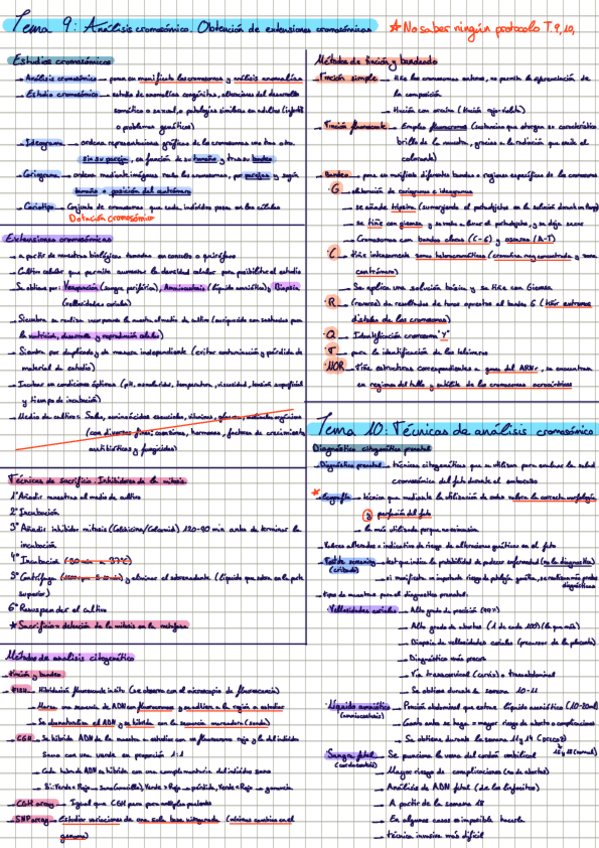 Tema 9: Análisis cromosómico. Obtención de extensiones cromosómicas
★ No saber ningún protocolo T.9,10,
Estudios cromosómicos
Análisis cromosómico → para manifestar los cromosomas y análisis anomalías
Estudio cromosómico → estudio de anomalías congénitas, alteraciones del desarrollo
somático o sexual, o patologías similares en adultos (infertil
o problemas genéticos)
Idiograma → ordena representaciones gráficas de los cromosomas en tras otro
sin su pareja, en función de su tamaño y tras su bandeo
Cariograma → ordena mediante imágenes todos los cromosomas, por parejas y según
tamaño + posición del centrómero
Cariotipo → Conjunto de cromosomas que cada individuo posee en las células
Dotación cromosómica
Extensiones cromosómicas
a partir de muestras biológicas tomadas en consulta o quirófano
Cultivo celular que permite aumentar la densidad celular para posibilitar el estudio
Se obtiene por: Venopunción (sangre periférica), Amniocentesis (líquido amniótico) y Biopsia
(vellosidades coriales)
Siembra se realiza incorporando la muestra al medio de cultivo (enriquecido con sustancias para
la nutrición, desarrollo y reproducción celular)
Siembra por duplicado y de manera independiente (evitar contaminación y pérdida de
material de estudio)
Incubar en condiciones óptimas (pH, osmolaridad, temperatura, viscosidad, tensión superficial
y tiempo de incubación)
Medio de cultivo: Sales, aminoácidos esenciales, vitaminas, glucosa,
(con diversos fines) coenzimas, hormonas, factores de crecimiento,
antibióticos y fungicidas)
Técnicas de sacrificio. Inhibidores de la mitosis
1º Añadir muestra al medio de cultivo
2º Incubación
3º Añadir inhibidor mitosis (Colchicina/Colcemid) 120-90 min antes de terminar la
incubación
4º Incubación (30 min a 37ºC)
5º Centrifuga y eliminar el sobrenadante (líquido que sobra en la parte
superior)
6º Resuspender el cultivo
★ Sacrificio = detección de la mitosis en la metafase
Métodos de análisis citogenético
Tinción y bandeo
FISH → Hibridación fluorescente in situ (se observa con el microscopio de fluorescencia)
Marca una secuencia de ADN con fluorocromos y se adhiere a la región a estudiar
Se desnaturaliza el ADN y se hibrida con la secuencia marcadora (sonda)
CGH → Se hibrida ADN de la muestra a estudiar con un fluorocromo rojo y la del individuo
Sano con uno verde en proporción 1:1
Cada hebra de ADN hibrida con una complementaria del individuo sano
Si: Verde=Rojo → sano (amarillo), Verde > Rojo → pérdida, Verde < Rojo → ganancia
CGH array → Igual que CGH pero para múltiples pacientes
SNP array → Estudiar variaciones de una sola base nitrogenada (mínimos cambios en el
genoma)
Métodos de tinción y bandeado
Tinción simple → tiñe los cromosomas enteros, no permite la diferenciación de
la composición
Tinción con orceína (tinción rojo-violeta)
Tinción fluorescente → Emplea fluorocromos (sustancias que otorgan su característico
brillo de la muestra, gracias a la radiación que emite el
colorante)
Bandeo → para manifestar diferentes bandas o regiones específicas de los cromosomas
G → elaboración de cariogramas e idiogramas
se añade tripsina (sumergiendo el portaobjetos en la solución durante un tiempo)
se tiñe con giemsa, y se vuelve a lavar el portaobjetos, y se deja secar
Cromosomas con bandas claras (C-G) y oscuras (A-T)
C → tiñe intensamente zonas heterocromáticas (cromatina muy concentrada y zona
centrómero)
Se aplica una solución básica y se tiñe con Giemsa
R → (reverse) da resultados de tonos opuestos al bandeo G (tiñe extremos
distales de los cromosomas)
Q → Identificación cromosoma "Y"
T → para la identificación de los telómeros
NOR → Tiñe estructuras correspondientes a genes del ARNr, se encuentran
en regiones del tallo y satélite de los cromosomas acrocéntricos
Tema 10: Técnicas de análisis cromosómico
Diagnóstico citogenético prenatal
Diagnóstico prenatal → técnicas citogenéticas que se utilizan para evaluar la salud
cromosómica del feto durante el embarazo
★ Ecografía → técnica que mediante la utilización de ondas valora la correcta morfología
y perfusión del feto
la más utilizada porque no es invasiva
Valores alterados = indicativo de riesgo de alteraciones genéticas en el feto
Test de screening → test que indica la probabilidad de padecer enfermedad (no la diagnostica)
(cribado)
si manifiesta importante riesgo de patología genética, se realizan más pruebas
diagnósticas
tipos de muestras para el diagnóstico prenatal:
Vellosidades coriales → Alto grado de precisión (99%)
Alto grado de abortos (1 de cada 100) (la que más)
Biopsia de vellosidades coriales (precursor de la placenta)
Diagnóstico más precoz
Vía transcervical (cérvix) o transabdominal
Se obtiene durante la semana 10-11
Líquido amniótico → Punción abdominal que extrae líquido amniótico (10-20ml)
(amniocentesis)
Cuanto antes se haga = mayor riesgo de aborto o complicaciones
Se obtiene durante la semana 11 y 14 (precoz)
16 y 18 (normal)
Sangre fetal → Se punciona la vena del cordón umbilical
(cordocentesis)
Mayor riesgo de complicaciones (no de abortos)
Análisis de ADN fetal (de los linfocitos)
A partir de la semana 18
En algunos casos es imposible hacerla
técnica invasiva más difícil